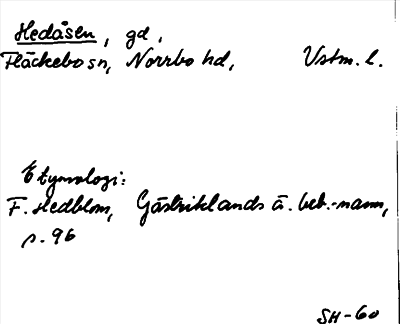 Hedåsen, gd,
Fläckebo sn, Norrbo hd, Vstm. l.
Etymologi:
F. Hedblom, Gästriklands ä. beb.-namn,
s. 96
SH-60